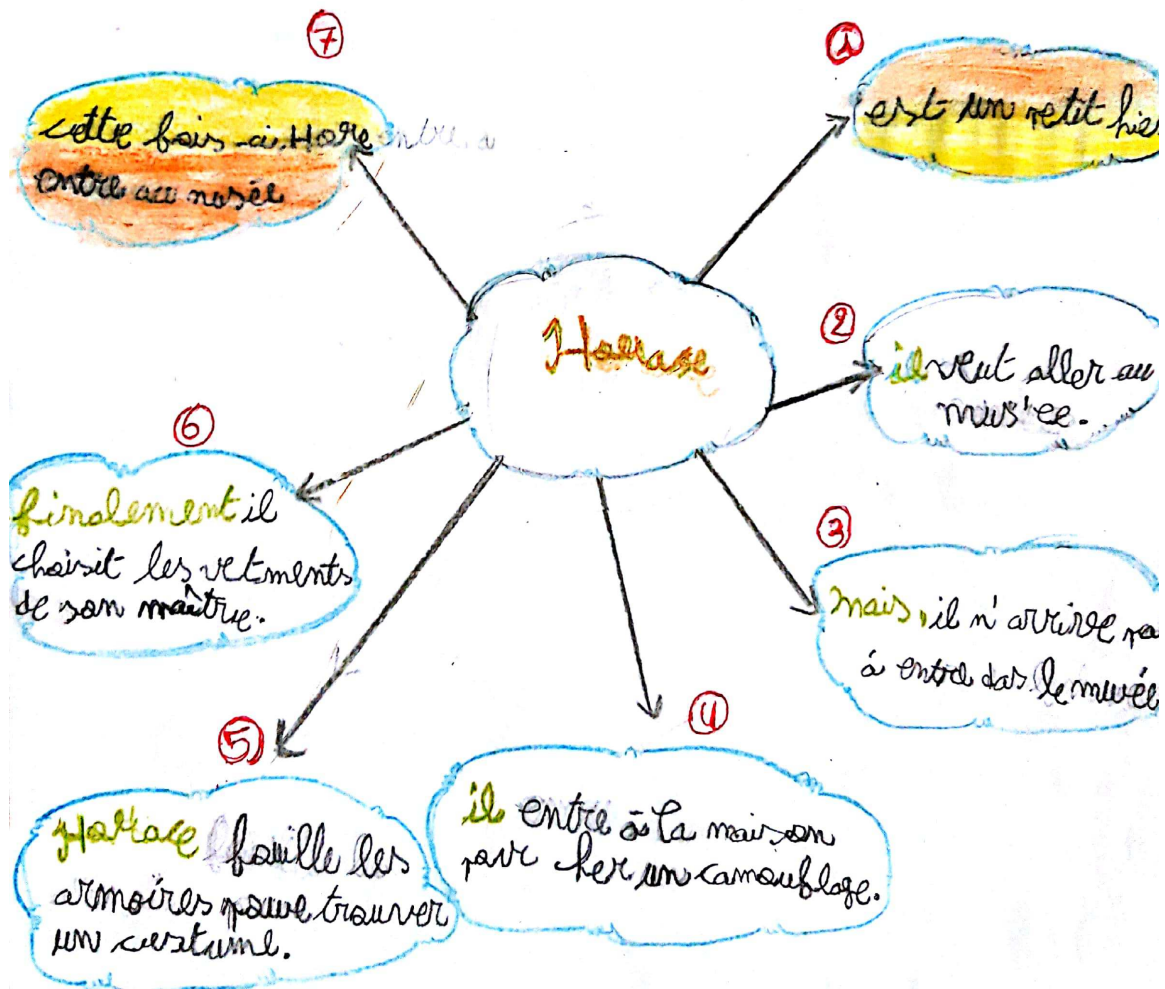 Horase
1
est un petit
2
il veut aller au
mus'ee.
3
mais, il n'arrive
à entre das le musée
4
il entre à la maison
pour her un camouflage.
5
Horace fouille les
armoires poure trouver
un custume.
6
finalement il
choisit les vetments
de son maître.
7
cette fois-ci, Hore entre a
entre au musée